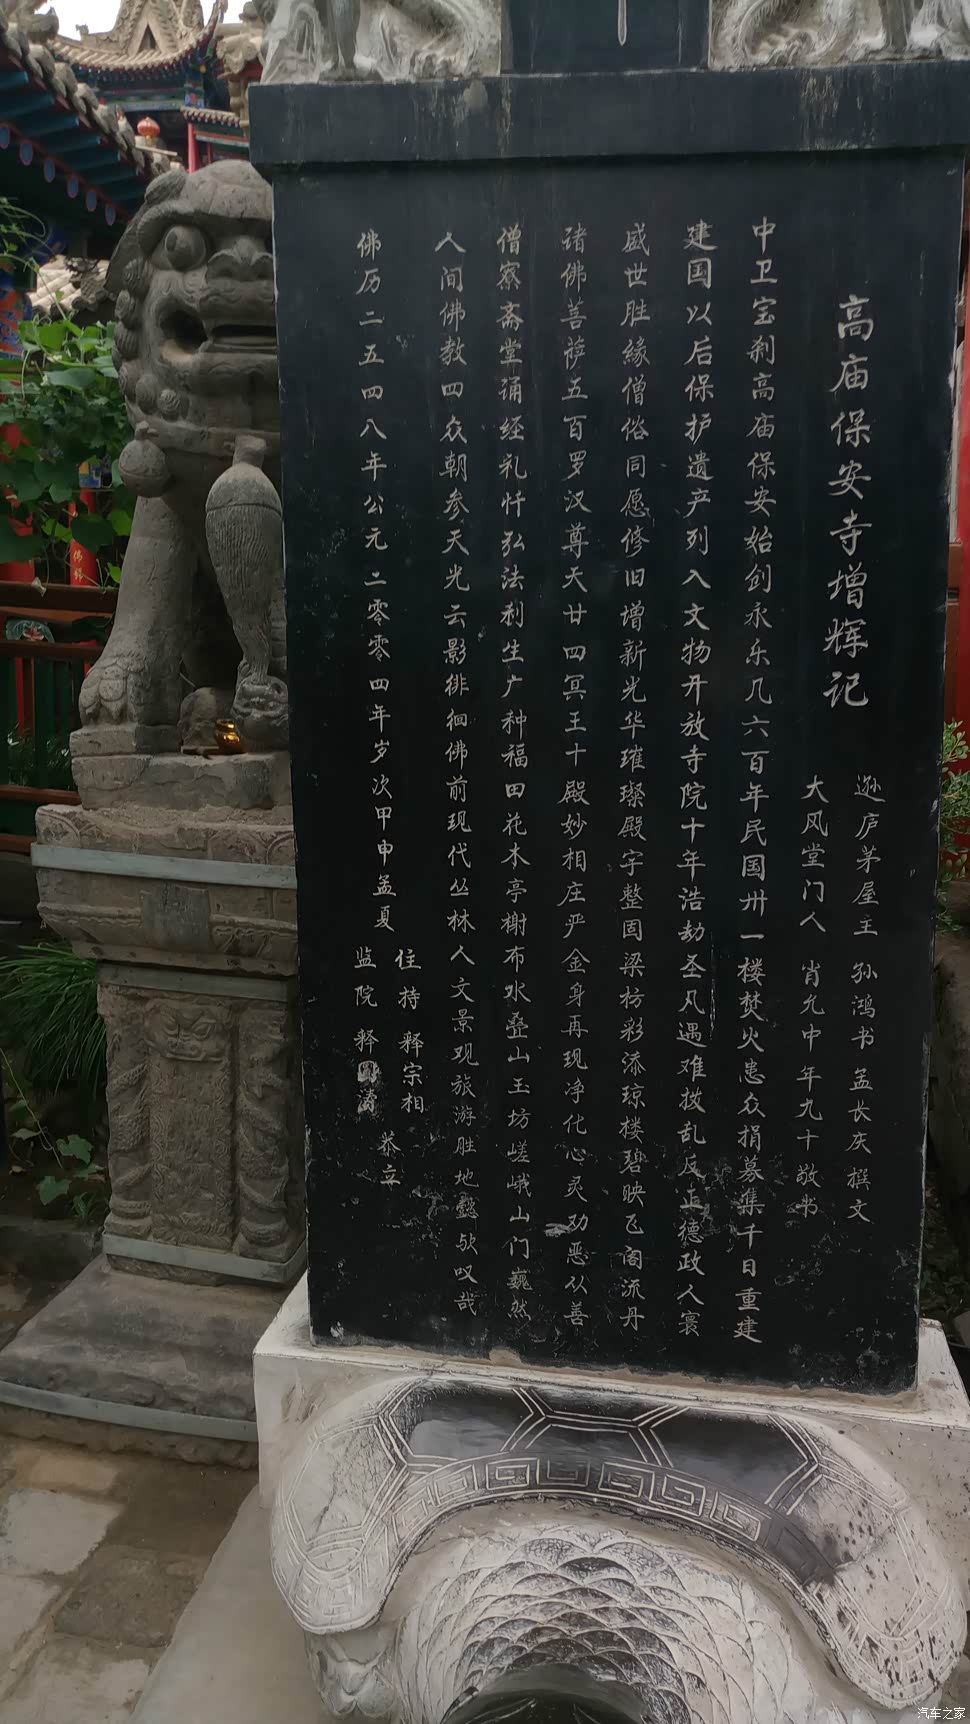 高庙保安寺增辉记
逊庐茅屋主 孙鸿书 孟长庆撰文
大风堂门人 肖允中年九十敬书
中卫宝刹高庙保安始创永乐几六百年民国卅一楼焚火患众捐募集千日重建
建国以后保护遗产列入文物开放寺院十年浩劫圣凡遇难拨乱反正德政人寰
盛世胜缘僧俗同愿修旧增新光华璀璨殿宇整固梁枋彩漆琼楼碧映飞阁流丹
诸佛菩萨五百罗汉尊天廿四冥王十殿妙相庄严金身再现净化心灵劝恶从善
僧寮斋堂诵经礼忏弘法利生广种福田花木亭榭布水叠山玉坊嵯峨山门巍然
人间佛教四众朝参天光云影徘徊佛前现代丛林人文景观旅游胜地懿欤叹哉
佛历二五四八年公元二零零四年岁次甲申孟夏
住持 释宗相
监院 释圆涛
恭立
佛缘
汽车之家